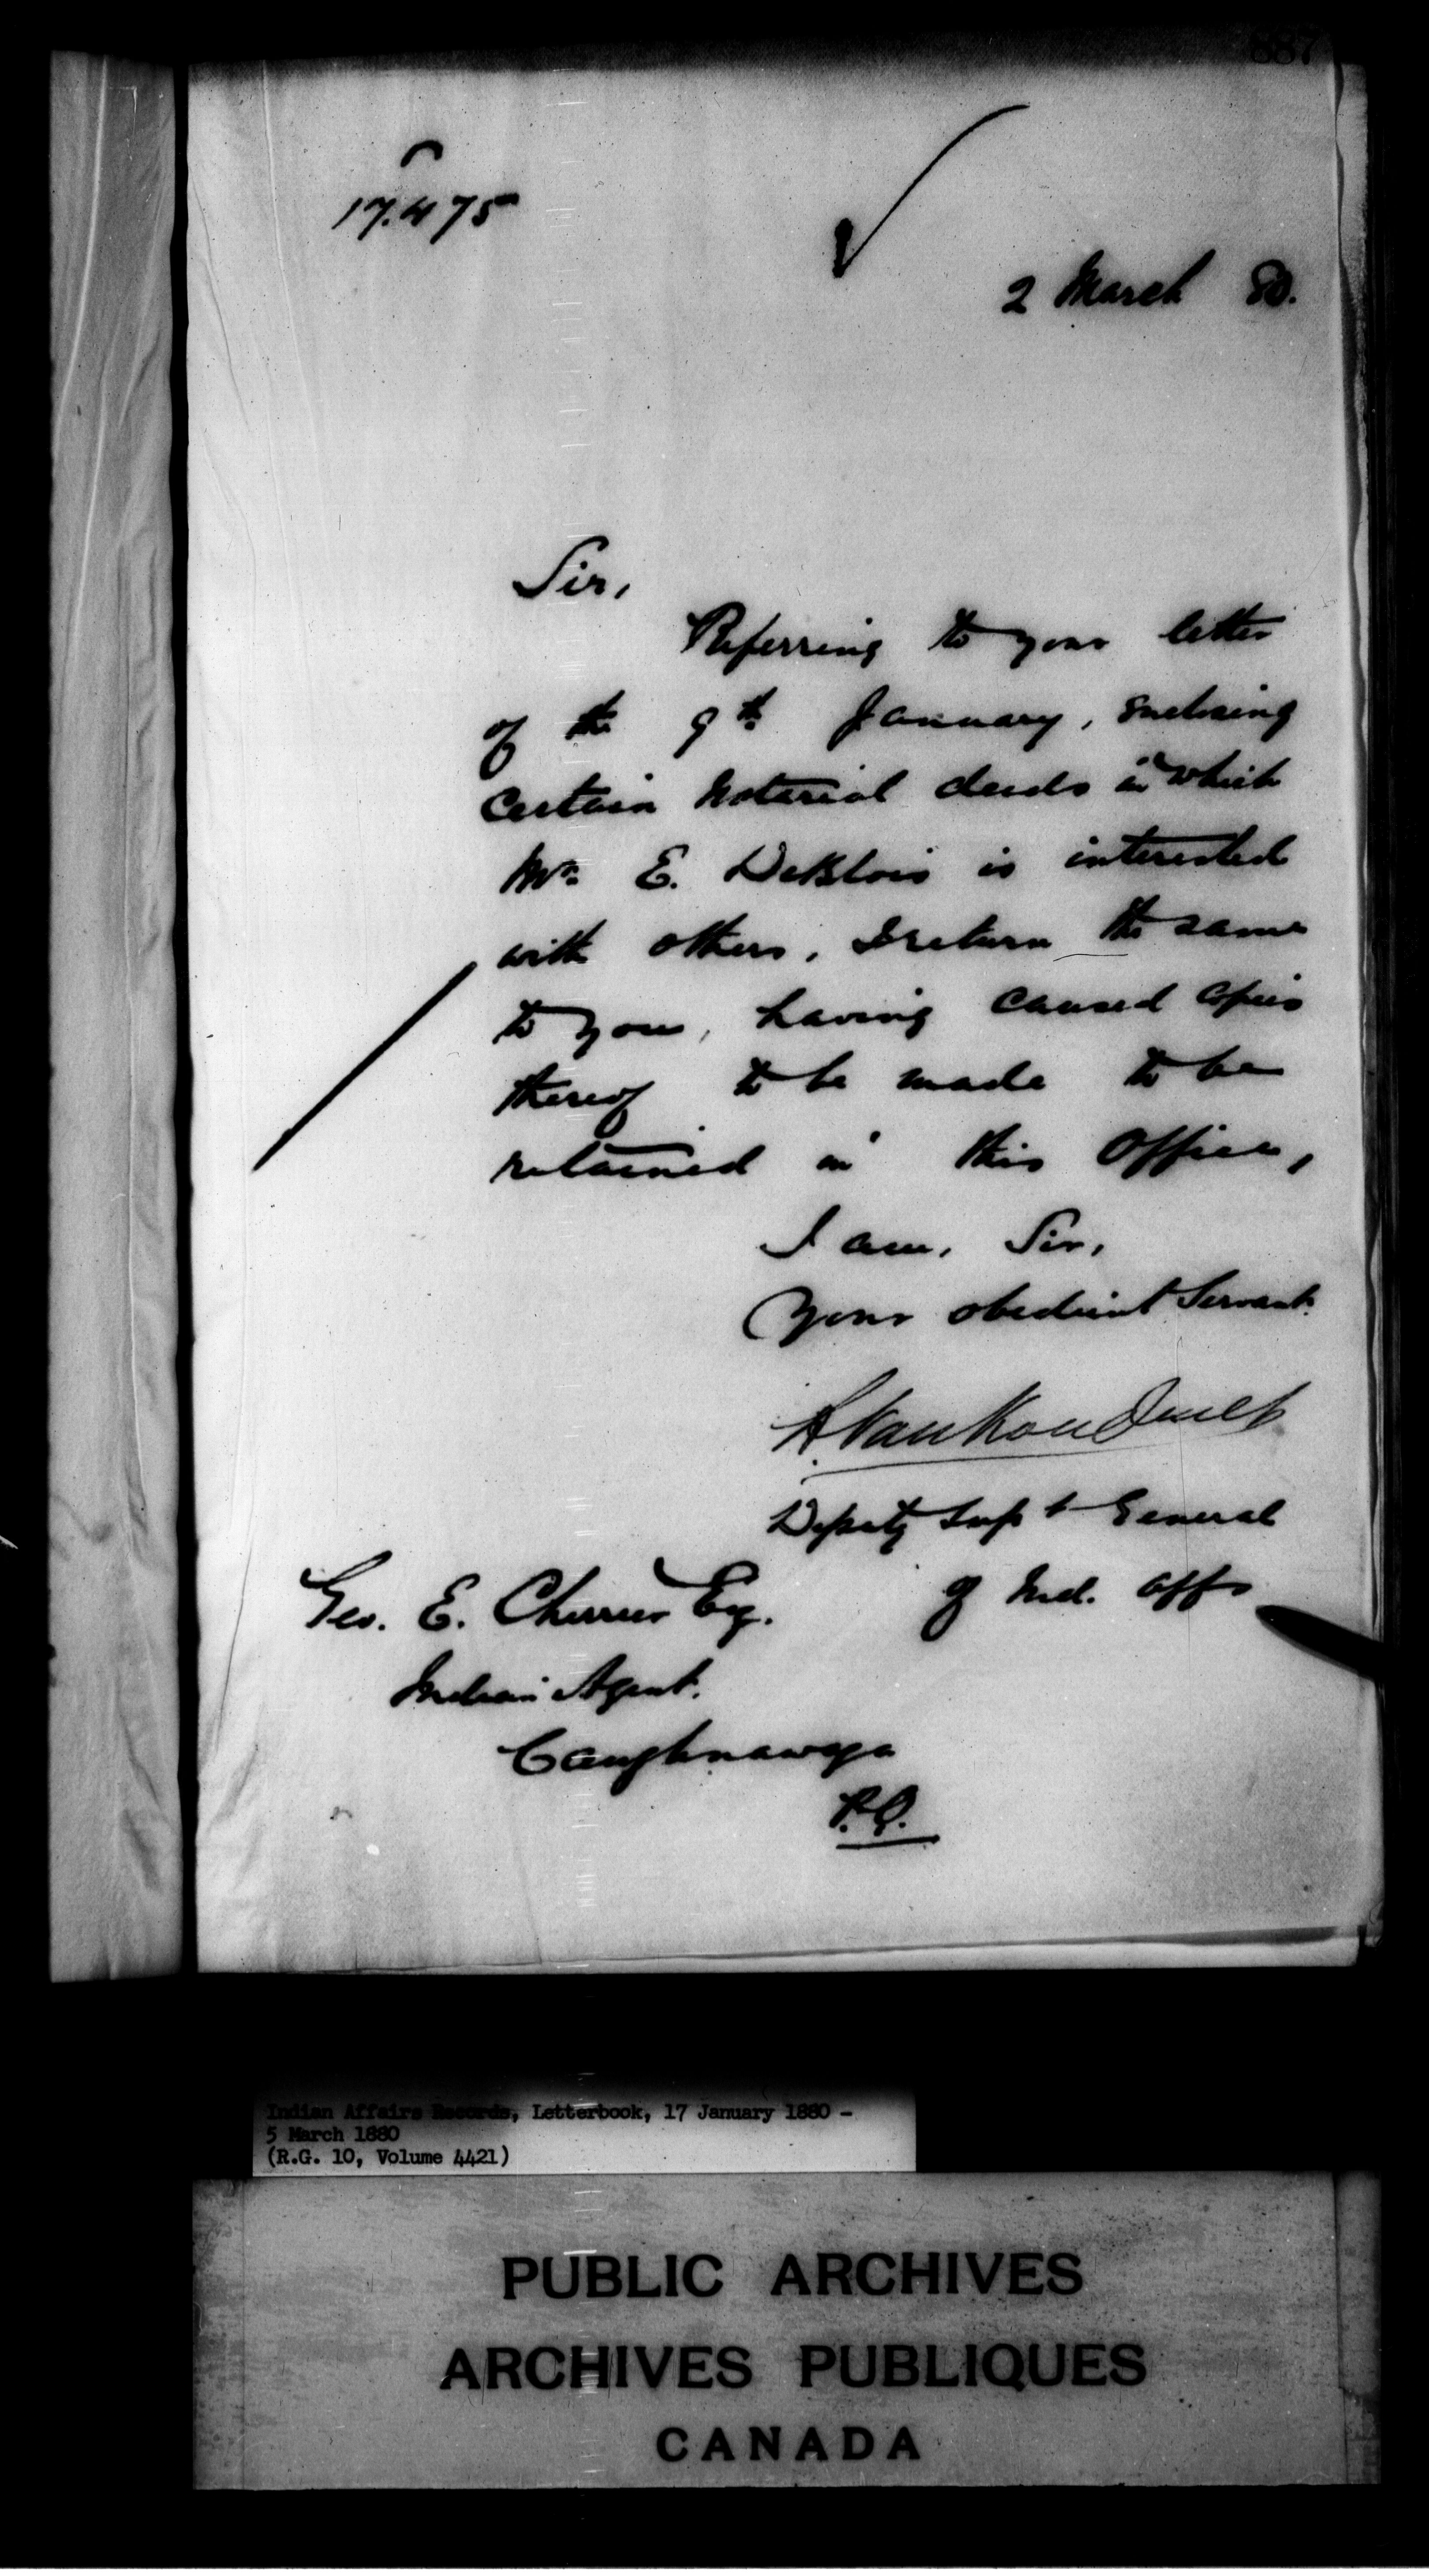 887
17.475
2 March 80.
Sir,
Referring to your letter
of the 9th January, enclosing
certain Notarial deeds in which
Mr. E. DeBlois is interested
with others, I return the same
to you, having caused copies
thereof to be made to be
retained in this Office,
I am, Sir,
Your obedient Servant.
L VanKoughnet
Deputy Supt General
of Ind. Affs
Geo. E. Cherrier Esq.
Indian Agent.
Caughnawaga
P.Q.
Indian Affairs Records, Letterbook, 17 January 1880 -
5 March 1880
(R.G. 10, Volume 4421)
PUBLIC ARCHIVES
ARCHIVES PUBLIQUES
CANADA